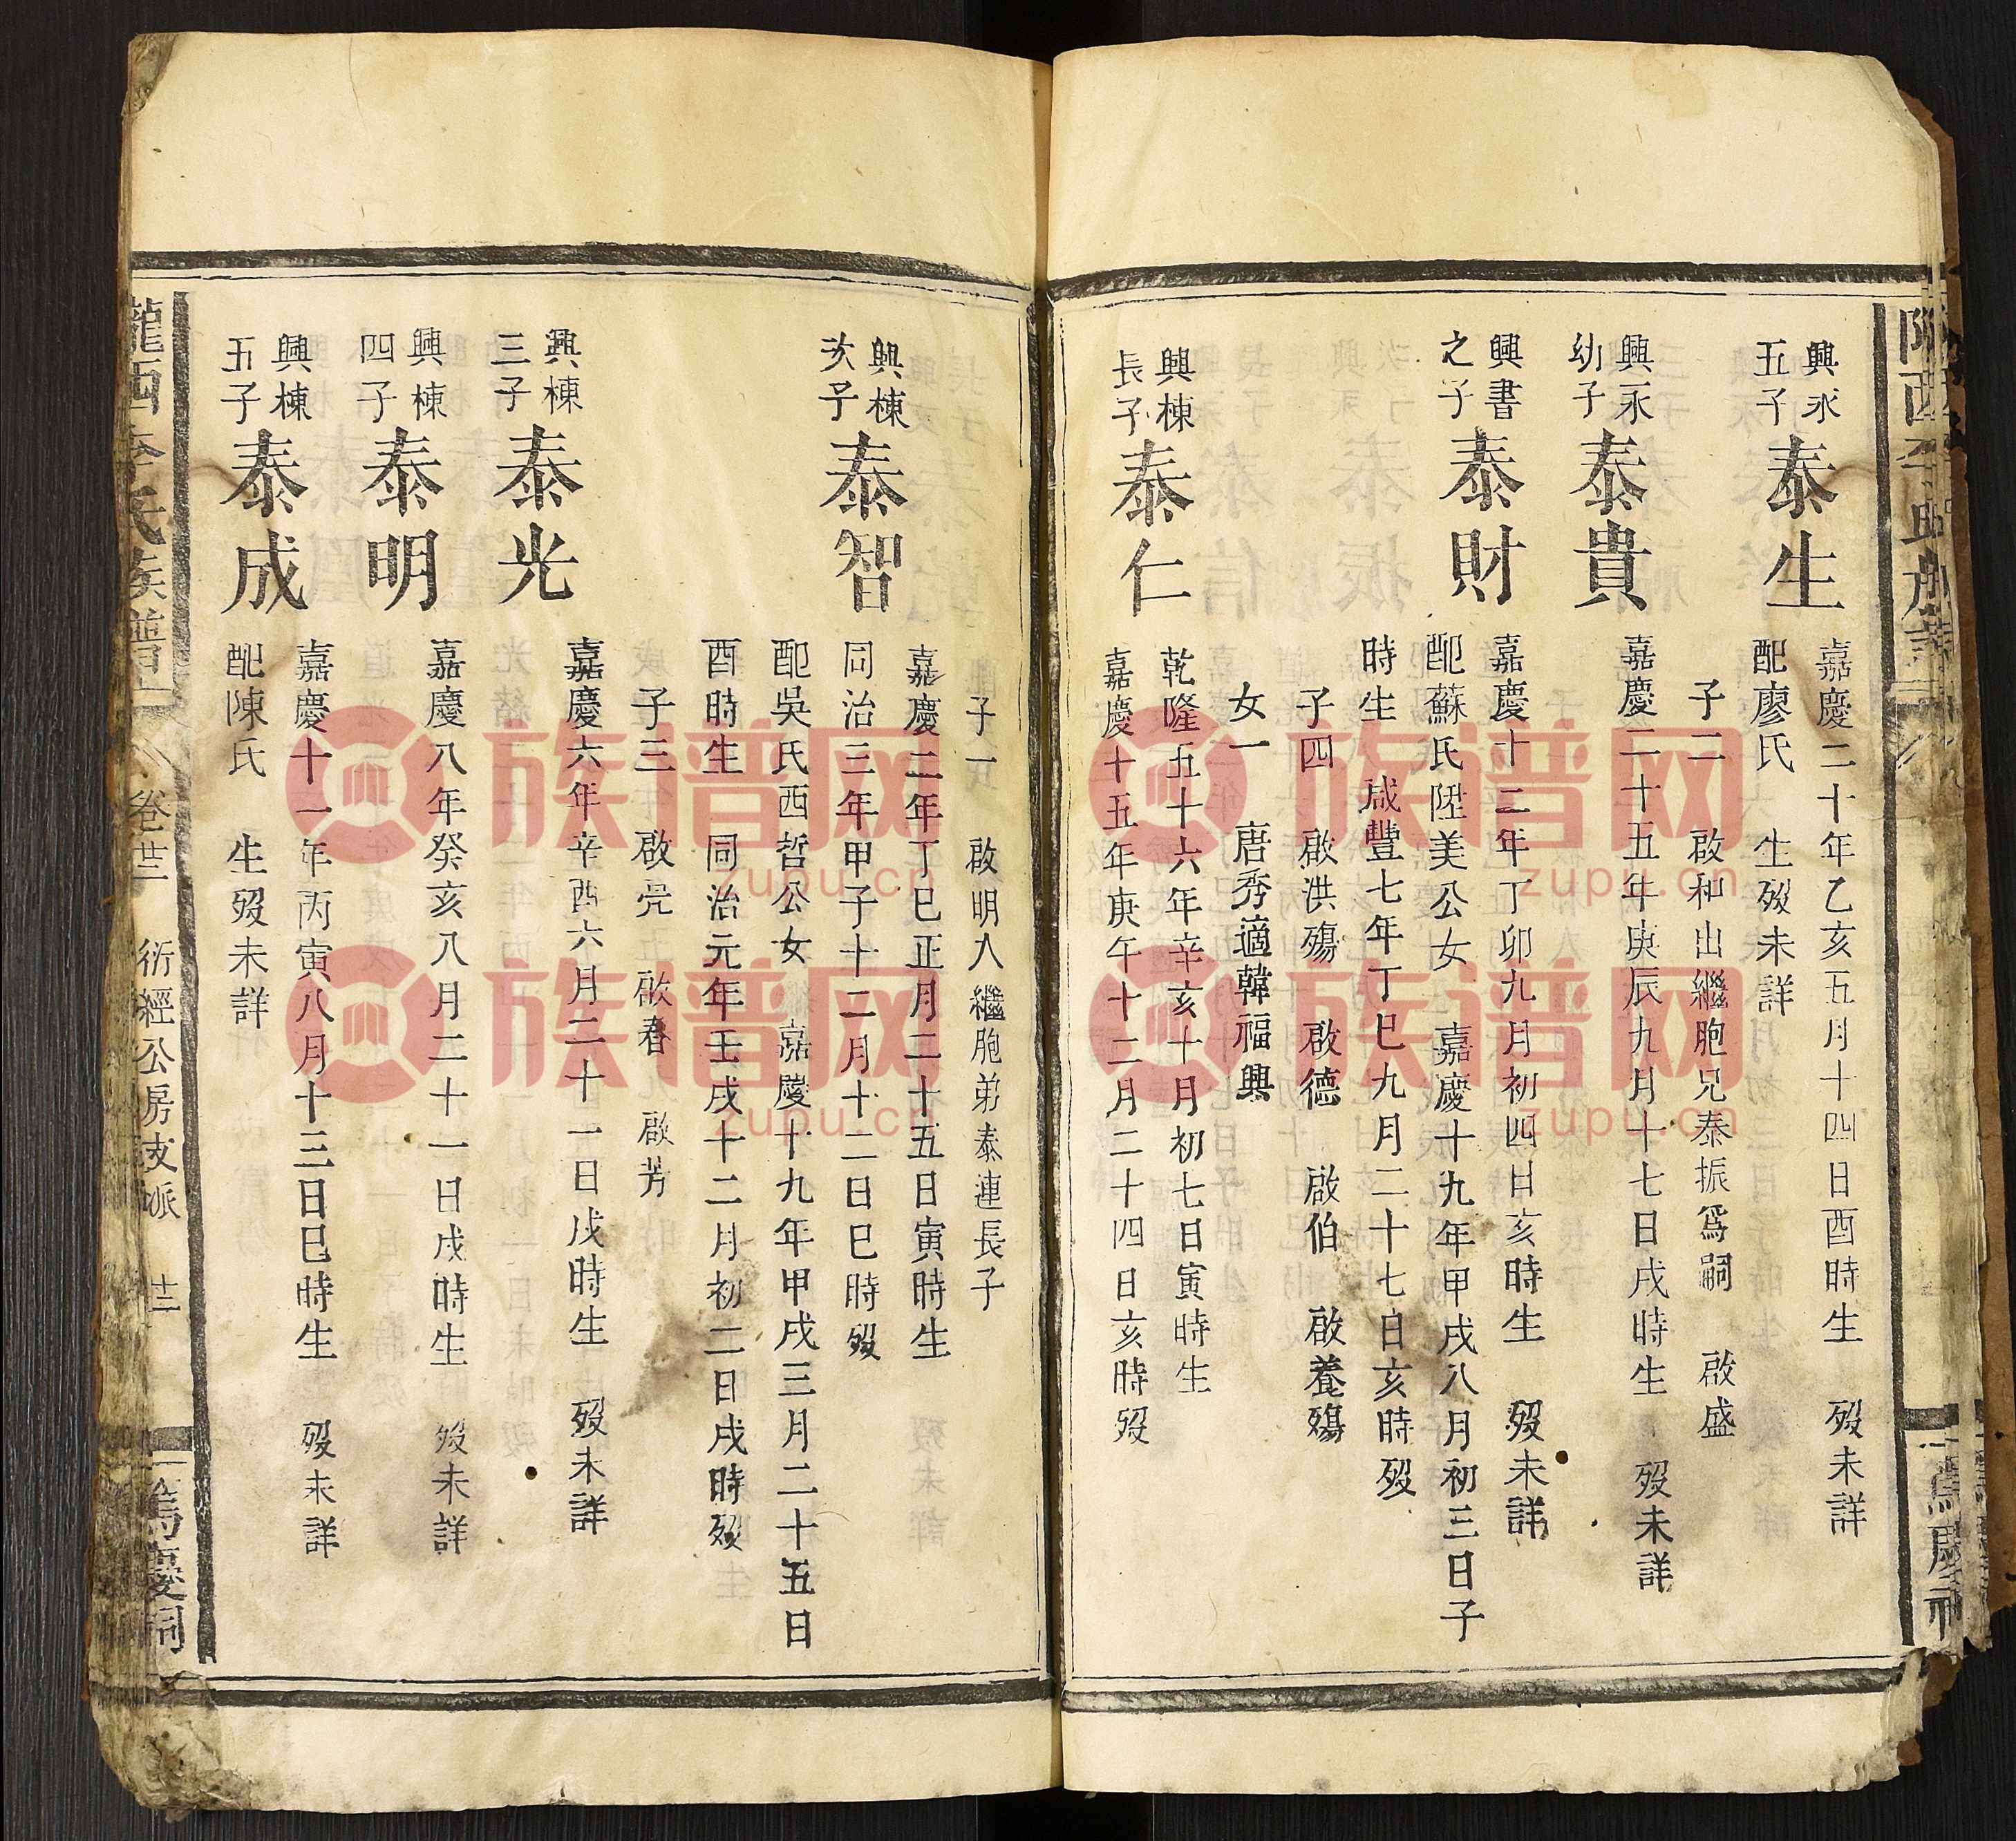 興永
五子
泰生
嘉慶二十年乙亥五月十四日酉時生　歿未詳
配廖氏　生歿未詳
子二　啟和出繼胞兄泰振爲嗣　啟盛
興永
幼子
泰貴
嘉慶二十五年庚辰九月十七日戌時生　歿未詳
興書
之子
泰財
嘉慶十二年丁卯九月初四日亥時生　歿未詳
配蘇氏陞美公女　嘉慶十九年甲戌八月初三日子
時生　咸豐七年丁巳九月二十七日亥時歿
子四　啟洪殤　啟德　啟伯　啟養殤
女一　唐秀適韓福興
興棟
長子
泰仁
乾隆五十六年辛亥十月初七日寅時生
嘉慶十五年庚午十二月二十四日亥時歿
子一　啟明入繼胞弟泰連長子
興棟
次子
泰智
嘉慶二年丁巳正月二十五日寅時生
同治三年甲子十二月十二日巳時歿
配吳氏西哲公女　嘉慶十九年甲戌三月二十五日
酉時生　同治元年壬戌十二月初二日戌時歿
子三　啟亮　啟春　啟芳
興棟
三子
泰光
嘉慶六年辛酉六月二十一日戌時生　歿未詳
興棟
四子
泰明
嘉慶八年癸亥八月二十一日戌時生　歿未詳
興棟
五子
泰成
嘉慶十一年丙寅八月十三日巳時生　歿未詳
配陳氏　生歿未詳
隴西李氏族譜　卷廿三　衍經公房支派　十三　篤慶祠
族谱网
zupu.cn
族谱网
zupu.cn
族谱网
zupu.cn
族谱网
zupu.cn